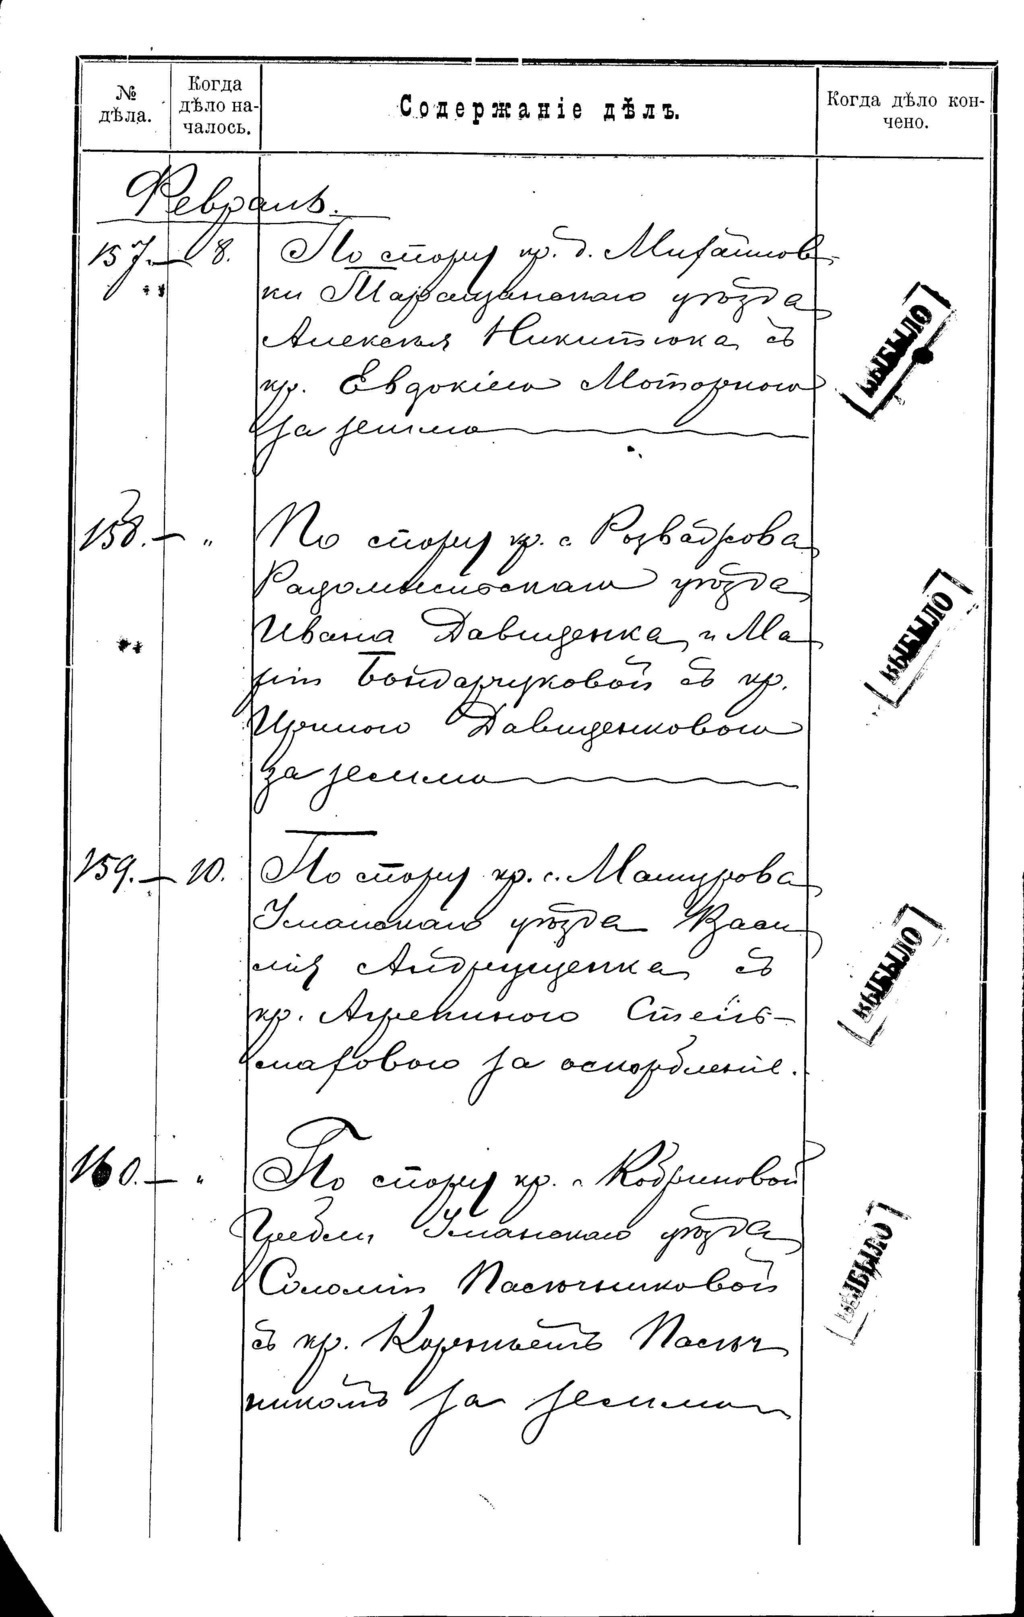 № дѣла.
Когда дѣло началось.
Содержаніе дѣлъ.
Когда дѣло кончено.
Февраль.
157. — 8. По спору кр. д. Михайлов-
ки Таращанскаго уѣзда
Алексѣя Никитюка съ
кр. Евдокіею Моторною
за землю
ВЫБЫЛО
158. — " По спору кр. с. Розважова
Радомысльскаго уѣзда
Ивана Давиденка и Ма
ріи Бондарчуковой съ кр.
Ириною Давиденковою
за землю
ВЫБЫЛО
159. — 10. По спору кр. с. Машурова
Уманскаго уѣзда Васи
лія Андрущенка съ
кр. Агрепиною Стель-
маховою за оскорбленіе.
ВЫБЫЛО
160. — " По спору кр. с. Кобриновой
Гребли Уманскаго уѣзда
Соломіи Пасючниковой
съ кр. Корнѣемъ Пасюч
никомъ за землю
ВЫБЫЛО